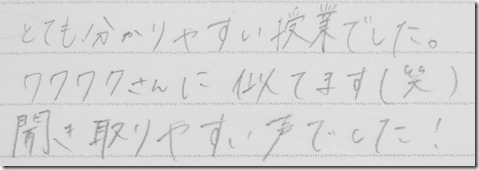 とても分かりやすい授業でした。
ワクワクさんに似てます(笑)
聞き取りやすい声でした!